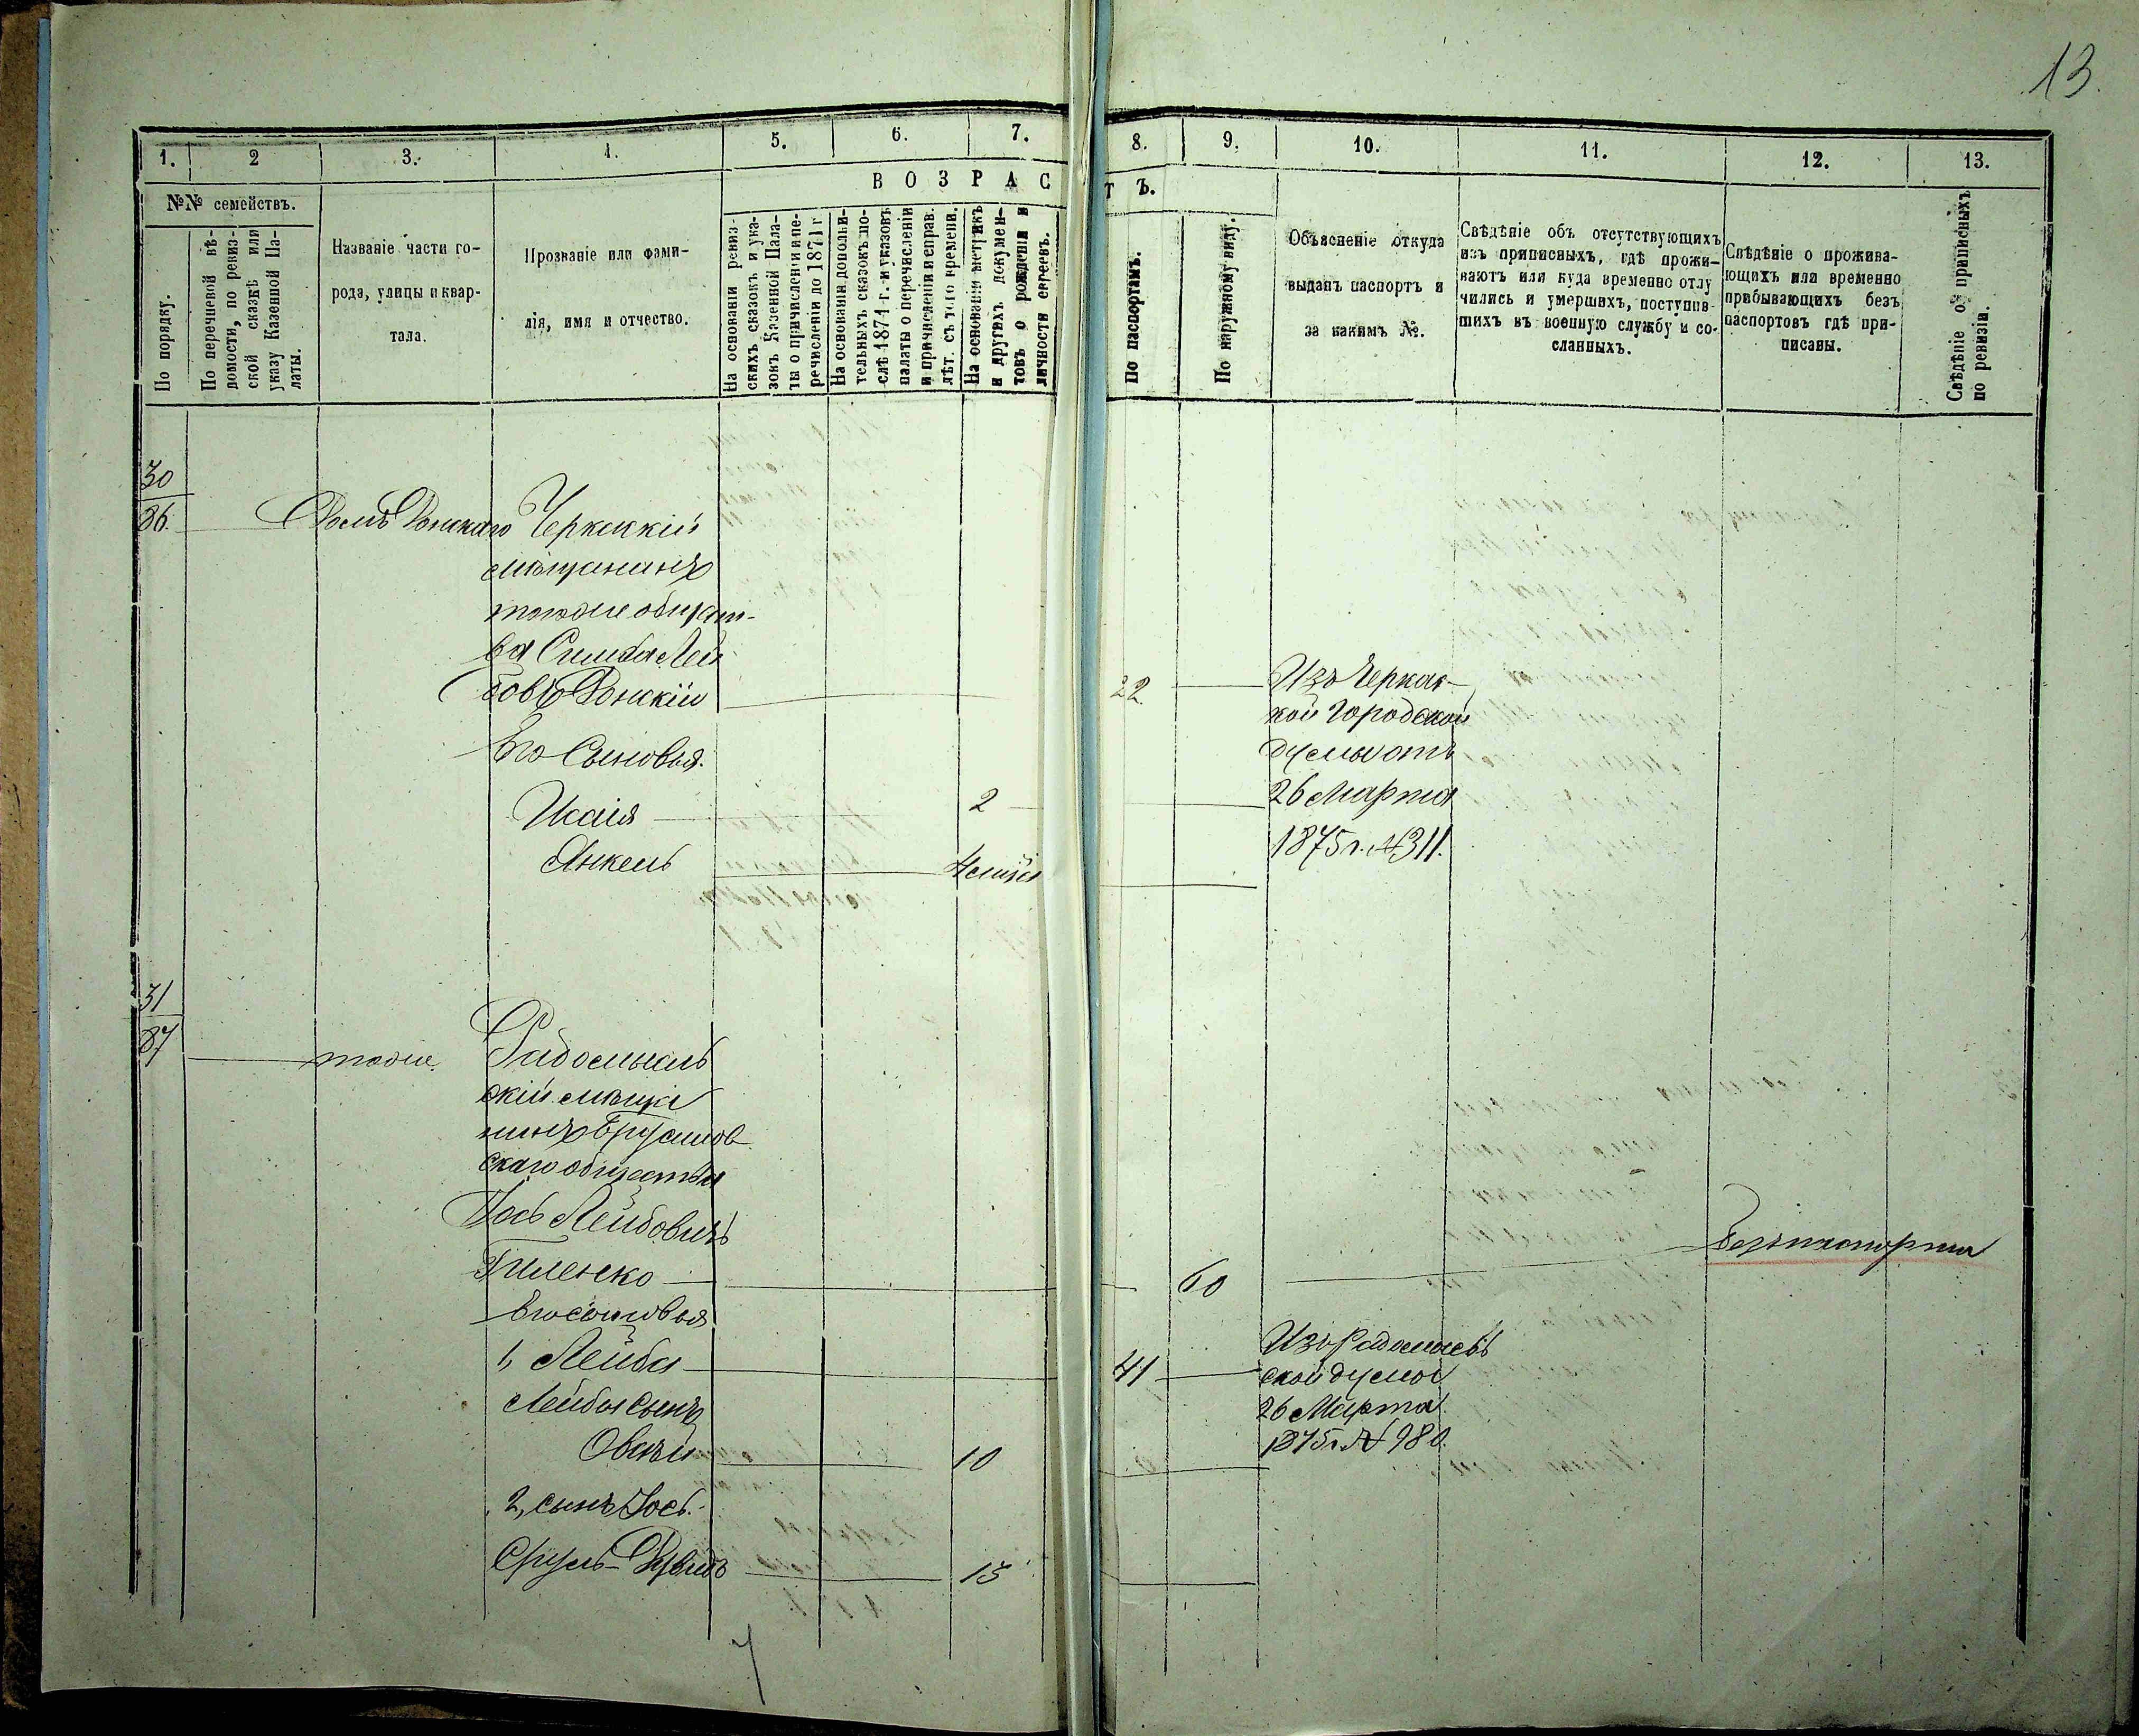 13.
1. 2 3. 4. 5. 6. 7. 8. 9. 10. 11. 12. 13.
ВОЗРАСТЪ.
№№ семействъ.
По порядку.
По перечневой вѣ-
домости, по ревиз-
ской сказкѣ или
указу Казенной Па-
латы.
Названіе части го-
рода, улицы и квар-
тала.
Прозваніе или фами-
лія, имя и отчество.
На основаніи ревиз-
скихъ сказокъ и ука-
зовъ Казенной Пала-
ты о причисленіи и пе-
речисленіи до 1871 г
На основаніи дополни-
тельныхъ сказокъ по-
слѣ 1874 г. и указовъ
палаты о перечисленіи
и причисленіи и неправ.
лѣт. съ того времени.
На основаніи метрикъ
и другихъ докумен-
товъ о рожденіи и
личности евреевъ.
По паспортамъ.
По наружному виду.
Объясненіе откуда
выданъ паспортъ и
за какимъ №.
Свѣдѣніе объ отсутствующихъ
изъ приписныхъ, гдѣ прожи-
ваютъ или куда временно отлу
чились и умершихъ, поступив-
шихъ въ военную службу и со-
сланныхъ.
Свѣдѣніе о прожива-
ющихъ или временно
прибывающихъ безъ
паспортовъ гдѣ при-
писаны.
Свѣдѣніе объ приписныхъ
по ревизіи.
30
86.
Домъ Донскаго
Черкаскій
мѣщанинъ
тогоже общест-
ва Симха Лей
бовъ Донскій
22
Изъ Черкас-
кой Городской
думы отъ
26 Марта
1875 г. №311.
Его Сыновья.
Исаія 2
Янкель 4 мѣся
31
87
тоже
Радомысль
скій мѣща
нинъ Брусилов
скаго общества
Іось Лейбовичъ
Гиленко 60
Безъ паспорта
Его сыновья
1, Лейба 41
Изъ Радомысль
ской думы
26 Марта
1875 г. № 980.
Лейбы сынъ
Овшій 10
2, сынъ Іося.
Сруль-Дувидъ 15